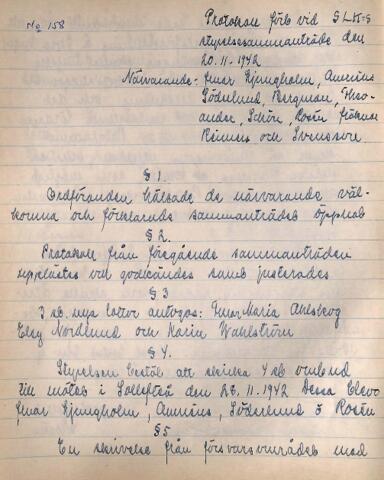 No 158
Protokoll förb vid SLK=s
styrelsesammanträde den
20.11.1942
Närvarande: fruar Ljungholm, Amréus
Söderlund, Bergman, Theo-
ander, Schön, Rosén fröknar
Reimers och Svensson.
§ 1.
Ordföranden hälsade de närvarande väl-
komna och förklarade sammanträdet öppnat
§ 2.
Protokoll från föregående sammanträden
upplästes och godkändes samt justerades
§ 3
3 st. nya lottor antogos: fruar Maria Ahlberg
Elsy Nordlund och Karin Wahlström
§ 4.
Styrelsen beslöt att skicka 4 st ombud
till mötet i Sollefteå den 28.11.1942 Dessa blevo
fruar Ljungholm, Amréus, Söderlund o Rosén
§ 5
En skrivelse från försvarsområdet med